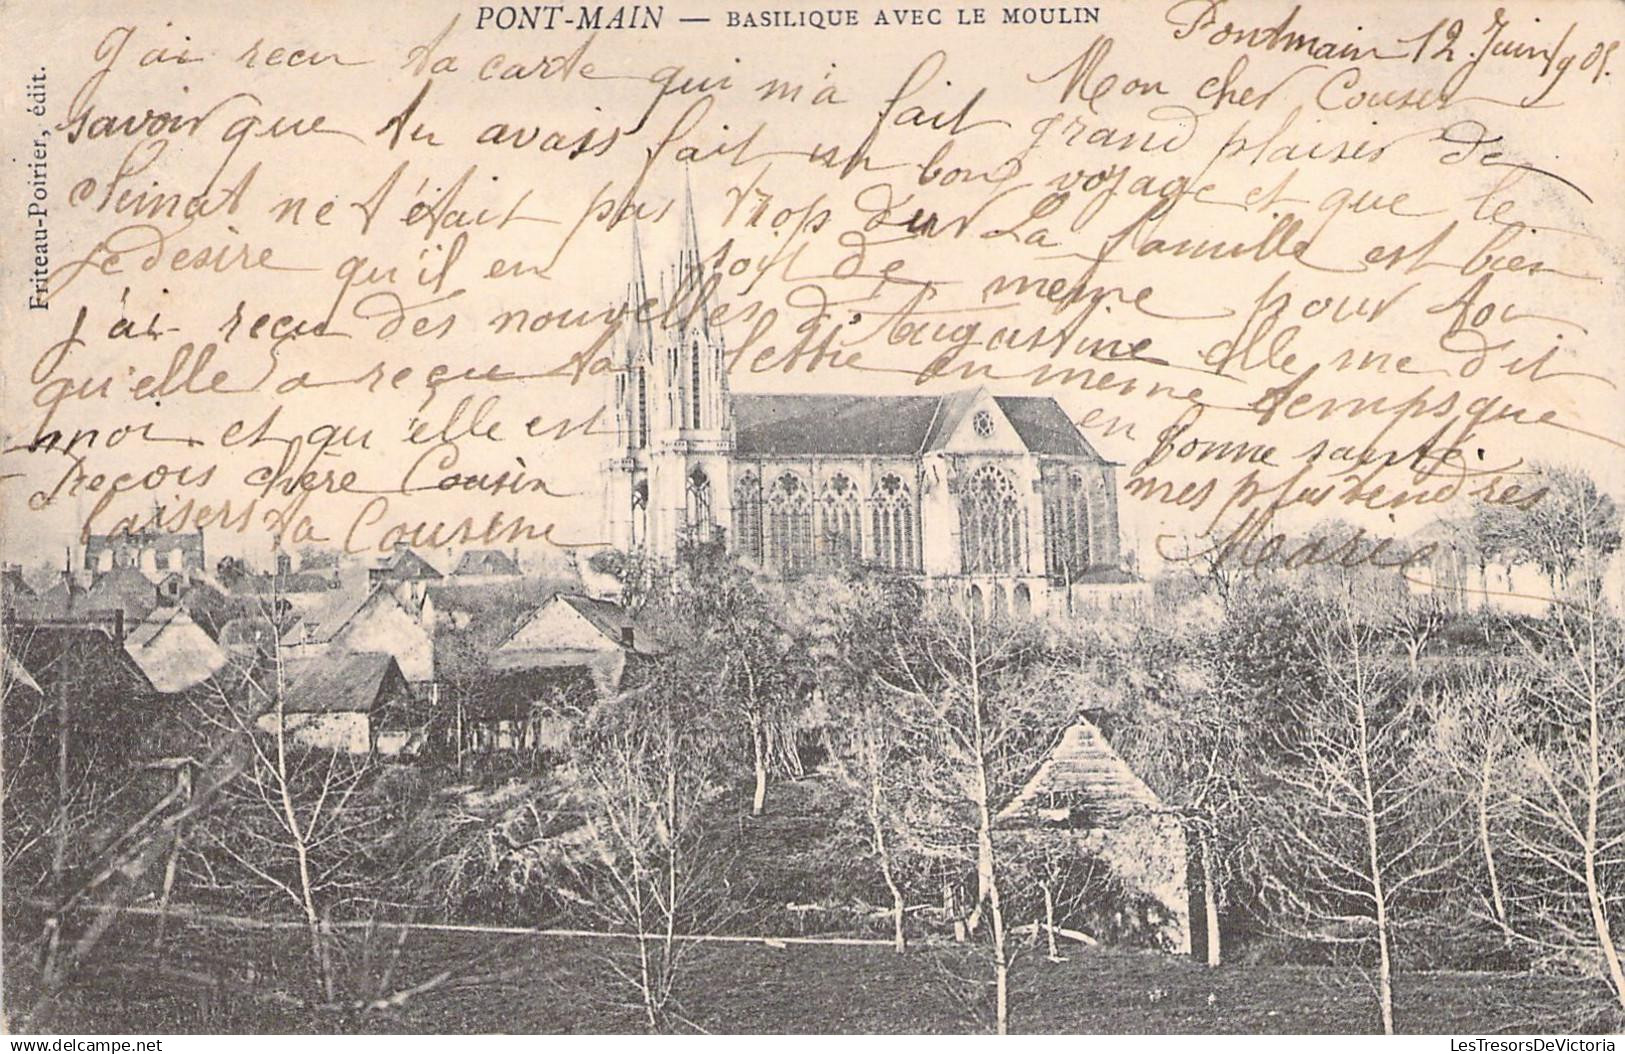 PONT-MAIN — BASILIQUE AVEC LE MOULIN
Friteau-Poirier, édit.
Pontmain 12 Juin 1905.
Mon cher Cousin
J'ai recu ta carte qui m'a fait grand plaisir de
savoir que tu avais fait un bon voyage et que le
climat ne t'était pas trop dur La famille est bien
je desire qu'il en soit de meme pour toi
j'ai reçu des nouvelles d'Augustine elle me dit
qu'elle a reçu ta lettre en meme temps que
moi et qu'elle est en bonne santé.
reçois chère Cousin mes plus tendres
baisers ta Cousine Marie
LesTresorsDeVictoria